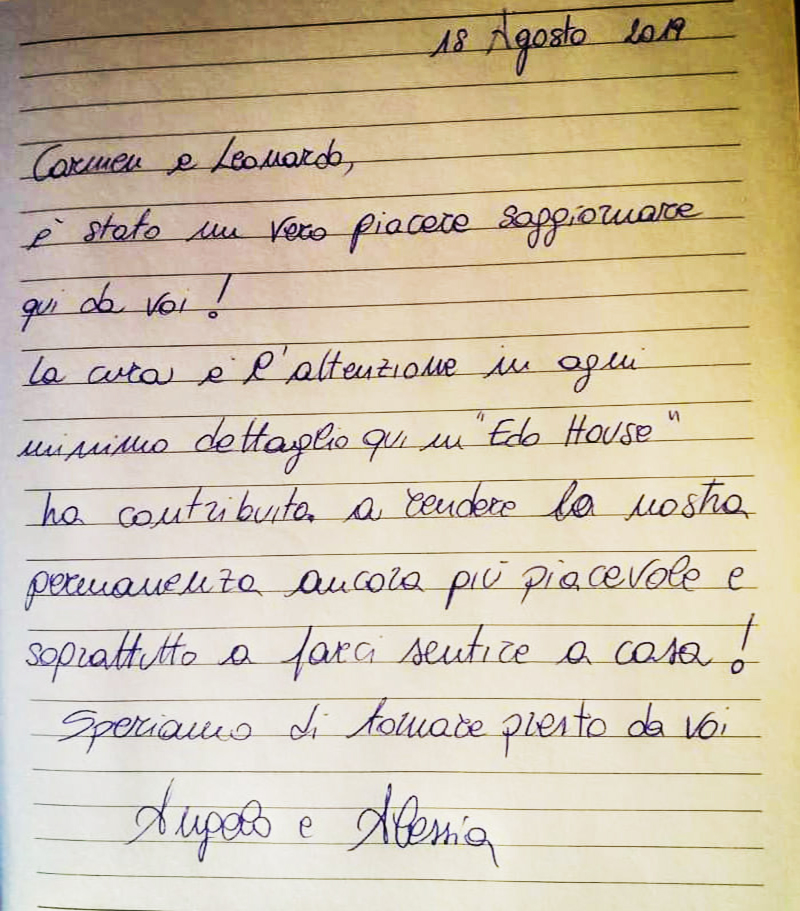 18 Agosto 2019
Carmen e Leonardo,
è stato un vero piacere soggiornare
qui da voi!
La cura e l'attenzione in ogni
minimo dettaglio qui in "Edo House"
ha contribuito a rendere la nostra
permanenza ancora più piacevole e
soprattutto a farci sentire a casa!
Speriamo di tornare presto da voi
Angelo e Alessia